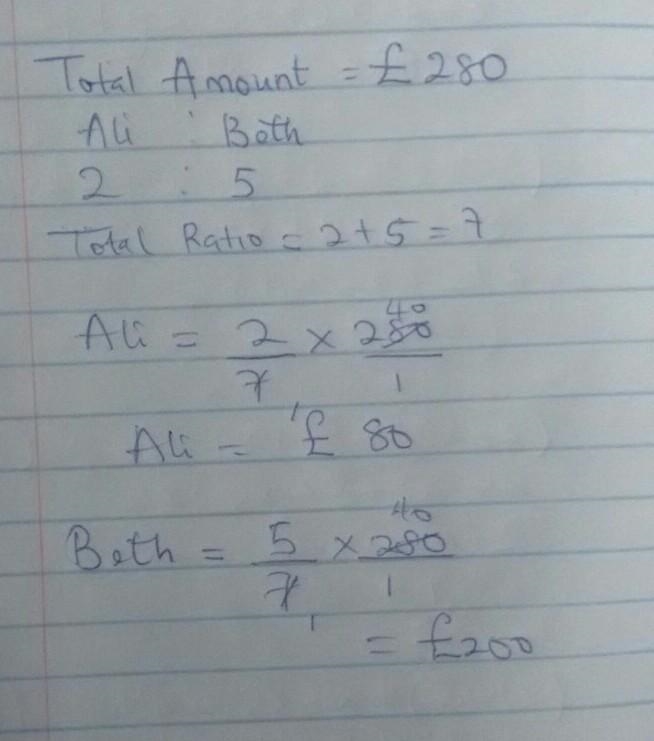 Total Amount = £280
Ali : Beth
2 : 5
Total Ratio = 2+5 = 7
40
Ali = 2 × 280
7 1
1
Ali = £ 80
40
Beth = 5 × 280
7 1
1
= £200